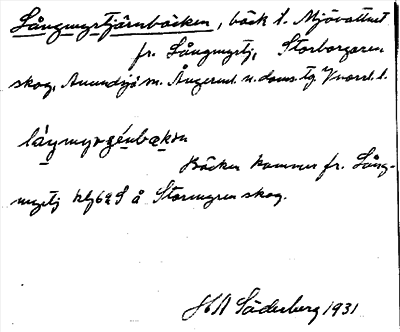 Långmyrtjärnbäcken, bäck t. Mjövattnet
fr. Långmyrtj, Storborgaren
skog, Anundsjö sn. Ångerml. n. doms. tg. Vnorrl. l.
låŋmyrɔɡénbækən
Bäcken kommer fr. Lång-
myrtj å Stormyren skog.
HA Söderberg 1931